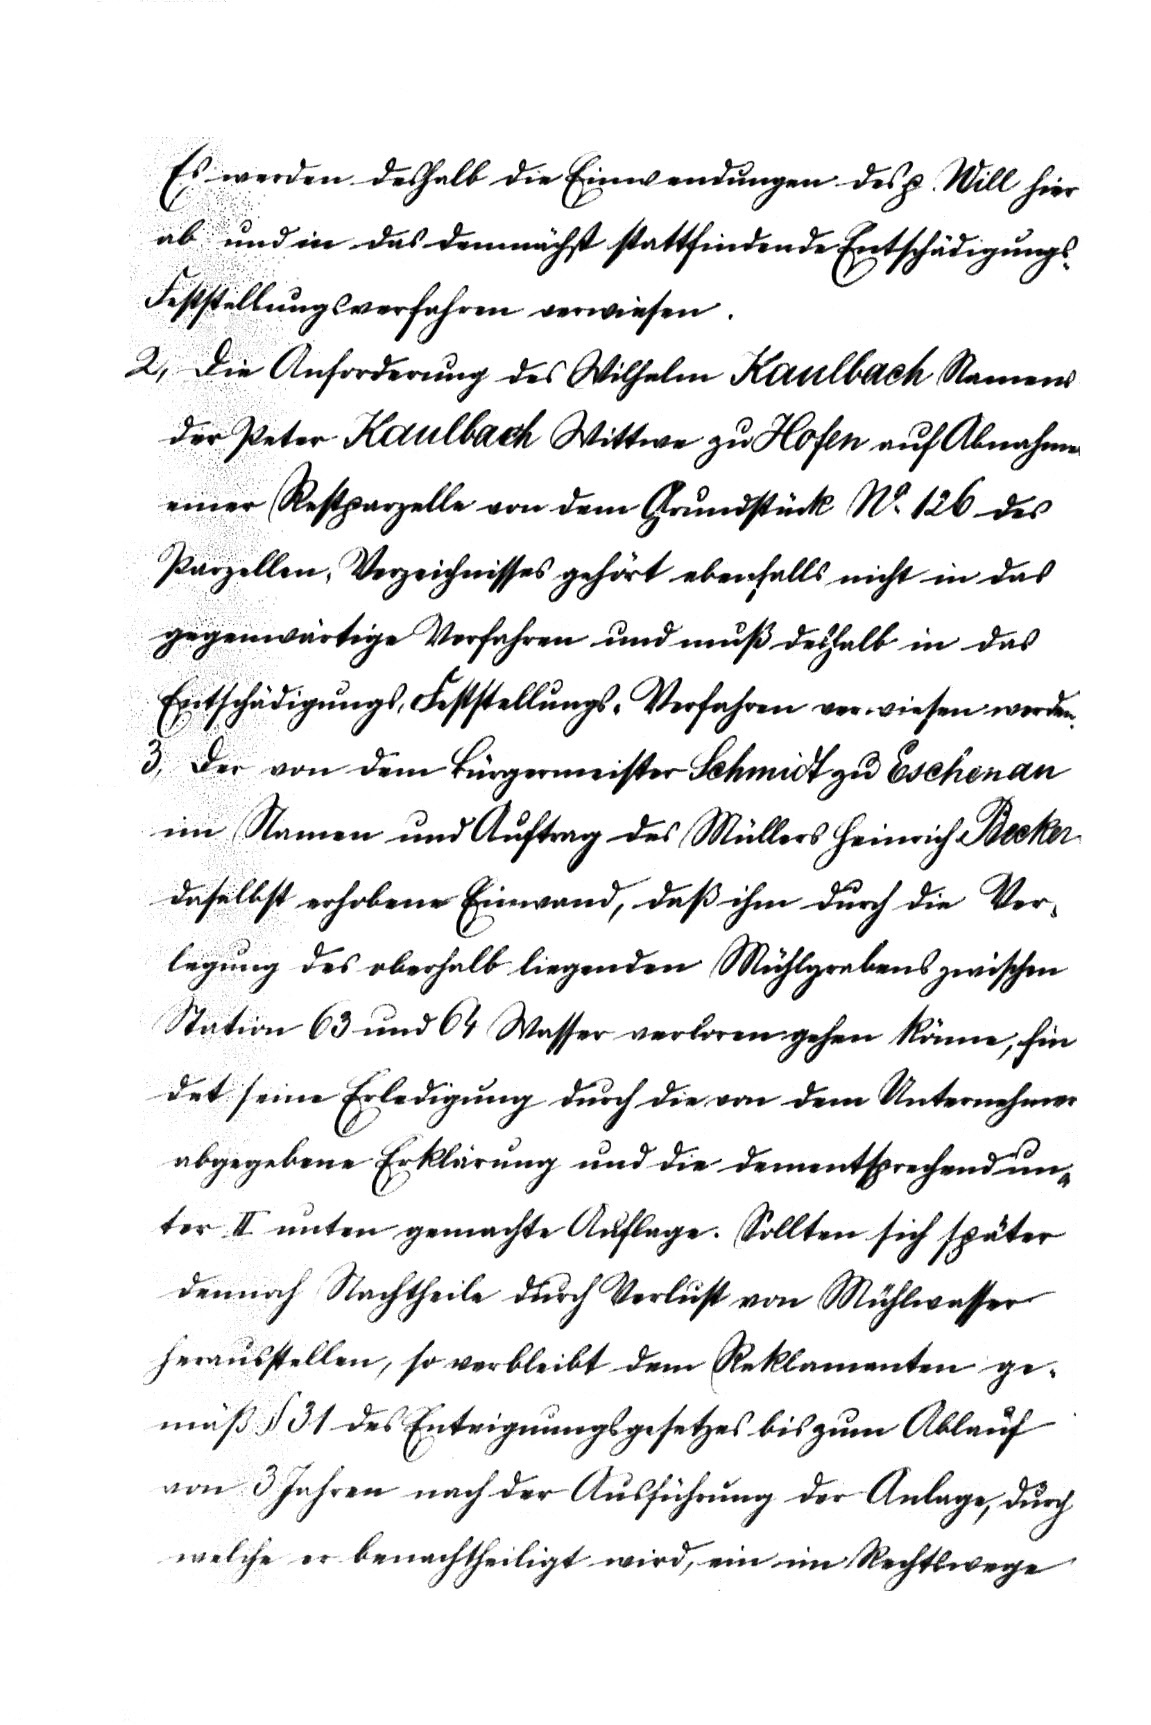 Es werden deshalb die Einwendungen des p. Will hier
ab und in das demnächst stattfindende Entschädigungs-
Feststellungsverfahren verwiesen.
2, Die Anforderung des Wilhelm Kaulbach Namens
der Peter Kaulbach Wittwe zu Hofen auf Abnahme
einer Restparzelle von dem Grundstück No. 126 des
Parzellen-Verzeichnisses gehört ebenfalls nicht in das
gegenwärtige Verfahren und muß deshalb in das
Entschädigungs-Feststellungs-Verfahren verwiesen werden.
3, Der von dem Bürgermeister Schmidt zu Eschenau
im Namen und Auftrag des Müllers Heinrich Becker
daselbst erhobene Einwand, daß ihm durch die Ver-
legung des oberhalb liegenden Mühlgrabens zwischen
Station 63 und 64 Wasser verloren gehen könne, fin
det seine Erledigung durch die von dem Unternehmer
abgegebene Erklärung und die dementsprechend un-
ter II unten gemachte Auflage. Sollten sich später
dennoch Nachtheile durch Verlust von Mühlwasser
herausstellen, so verbleibt dem Reklamanten ge-
mäß § 31 des Enteignungsgesetzes bis zum Ablauf
von 3 Jahren nach der Ausführung der Anlage, durch
welche er benachtheiligt wird, ein im Rechtswege